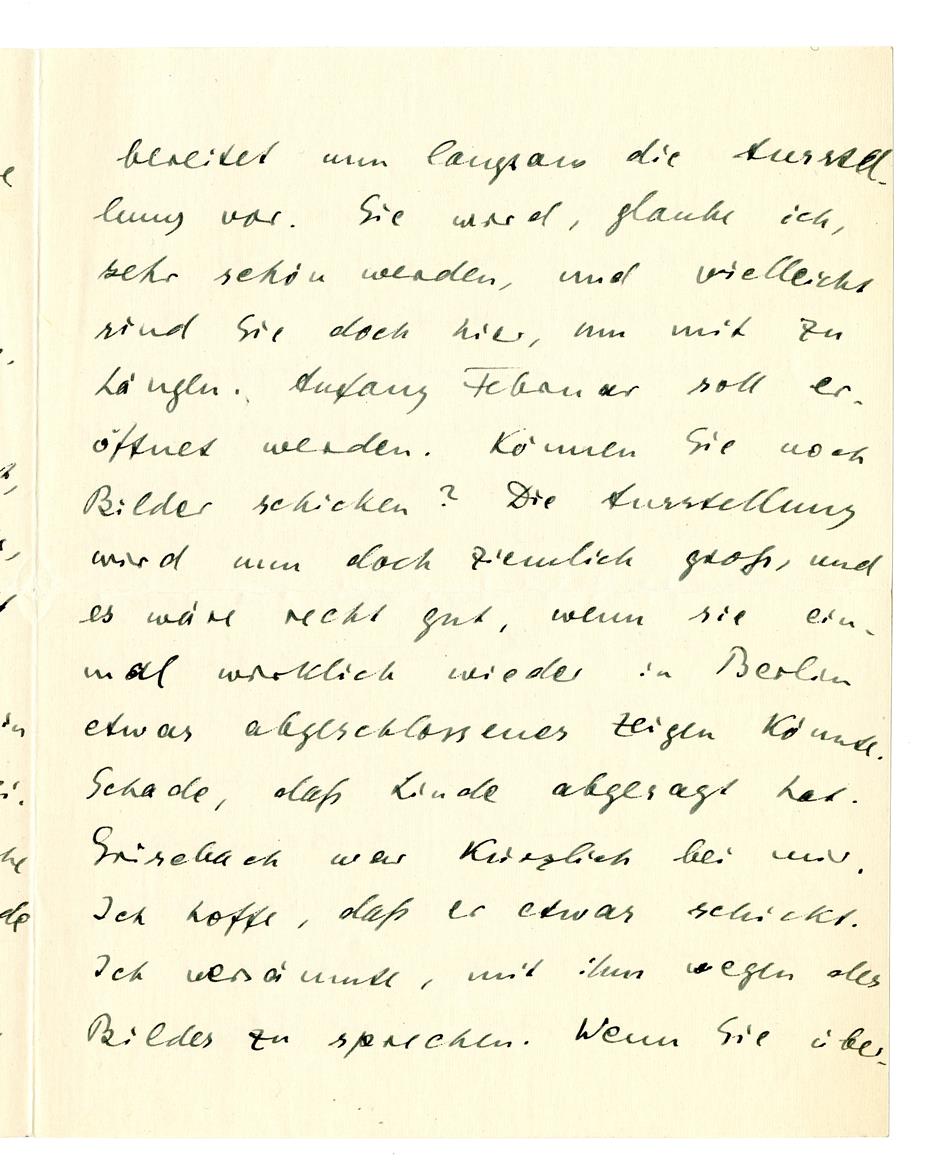 bereitet nun langsam die Ausstel-
lung vor. Sie wird, glaube ich,
sehr schön werden, und vielleicht
sind Sie doch hier, um mit zu
hängen. Anfang Februar soll er-
öffnet werden. Können Sie noch
Bilder schicken? Die Ausstellung
wird nun doch ziemlich groß, und
es wäre recht gut, wenn sie ein-
mal wirklich wieder in Berlin
etwas abgeschlossenes zeigen könnte.
Schade, daß Linde abgesagt hat.
Grisebach war kürzlich bei mir.
Ich hoffe, daß er etwas schickt.
Ich versäumte, mit ihm wegen des
Bildes zu sprechen. Wenn Sie über-